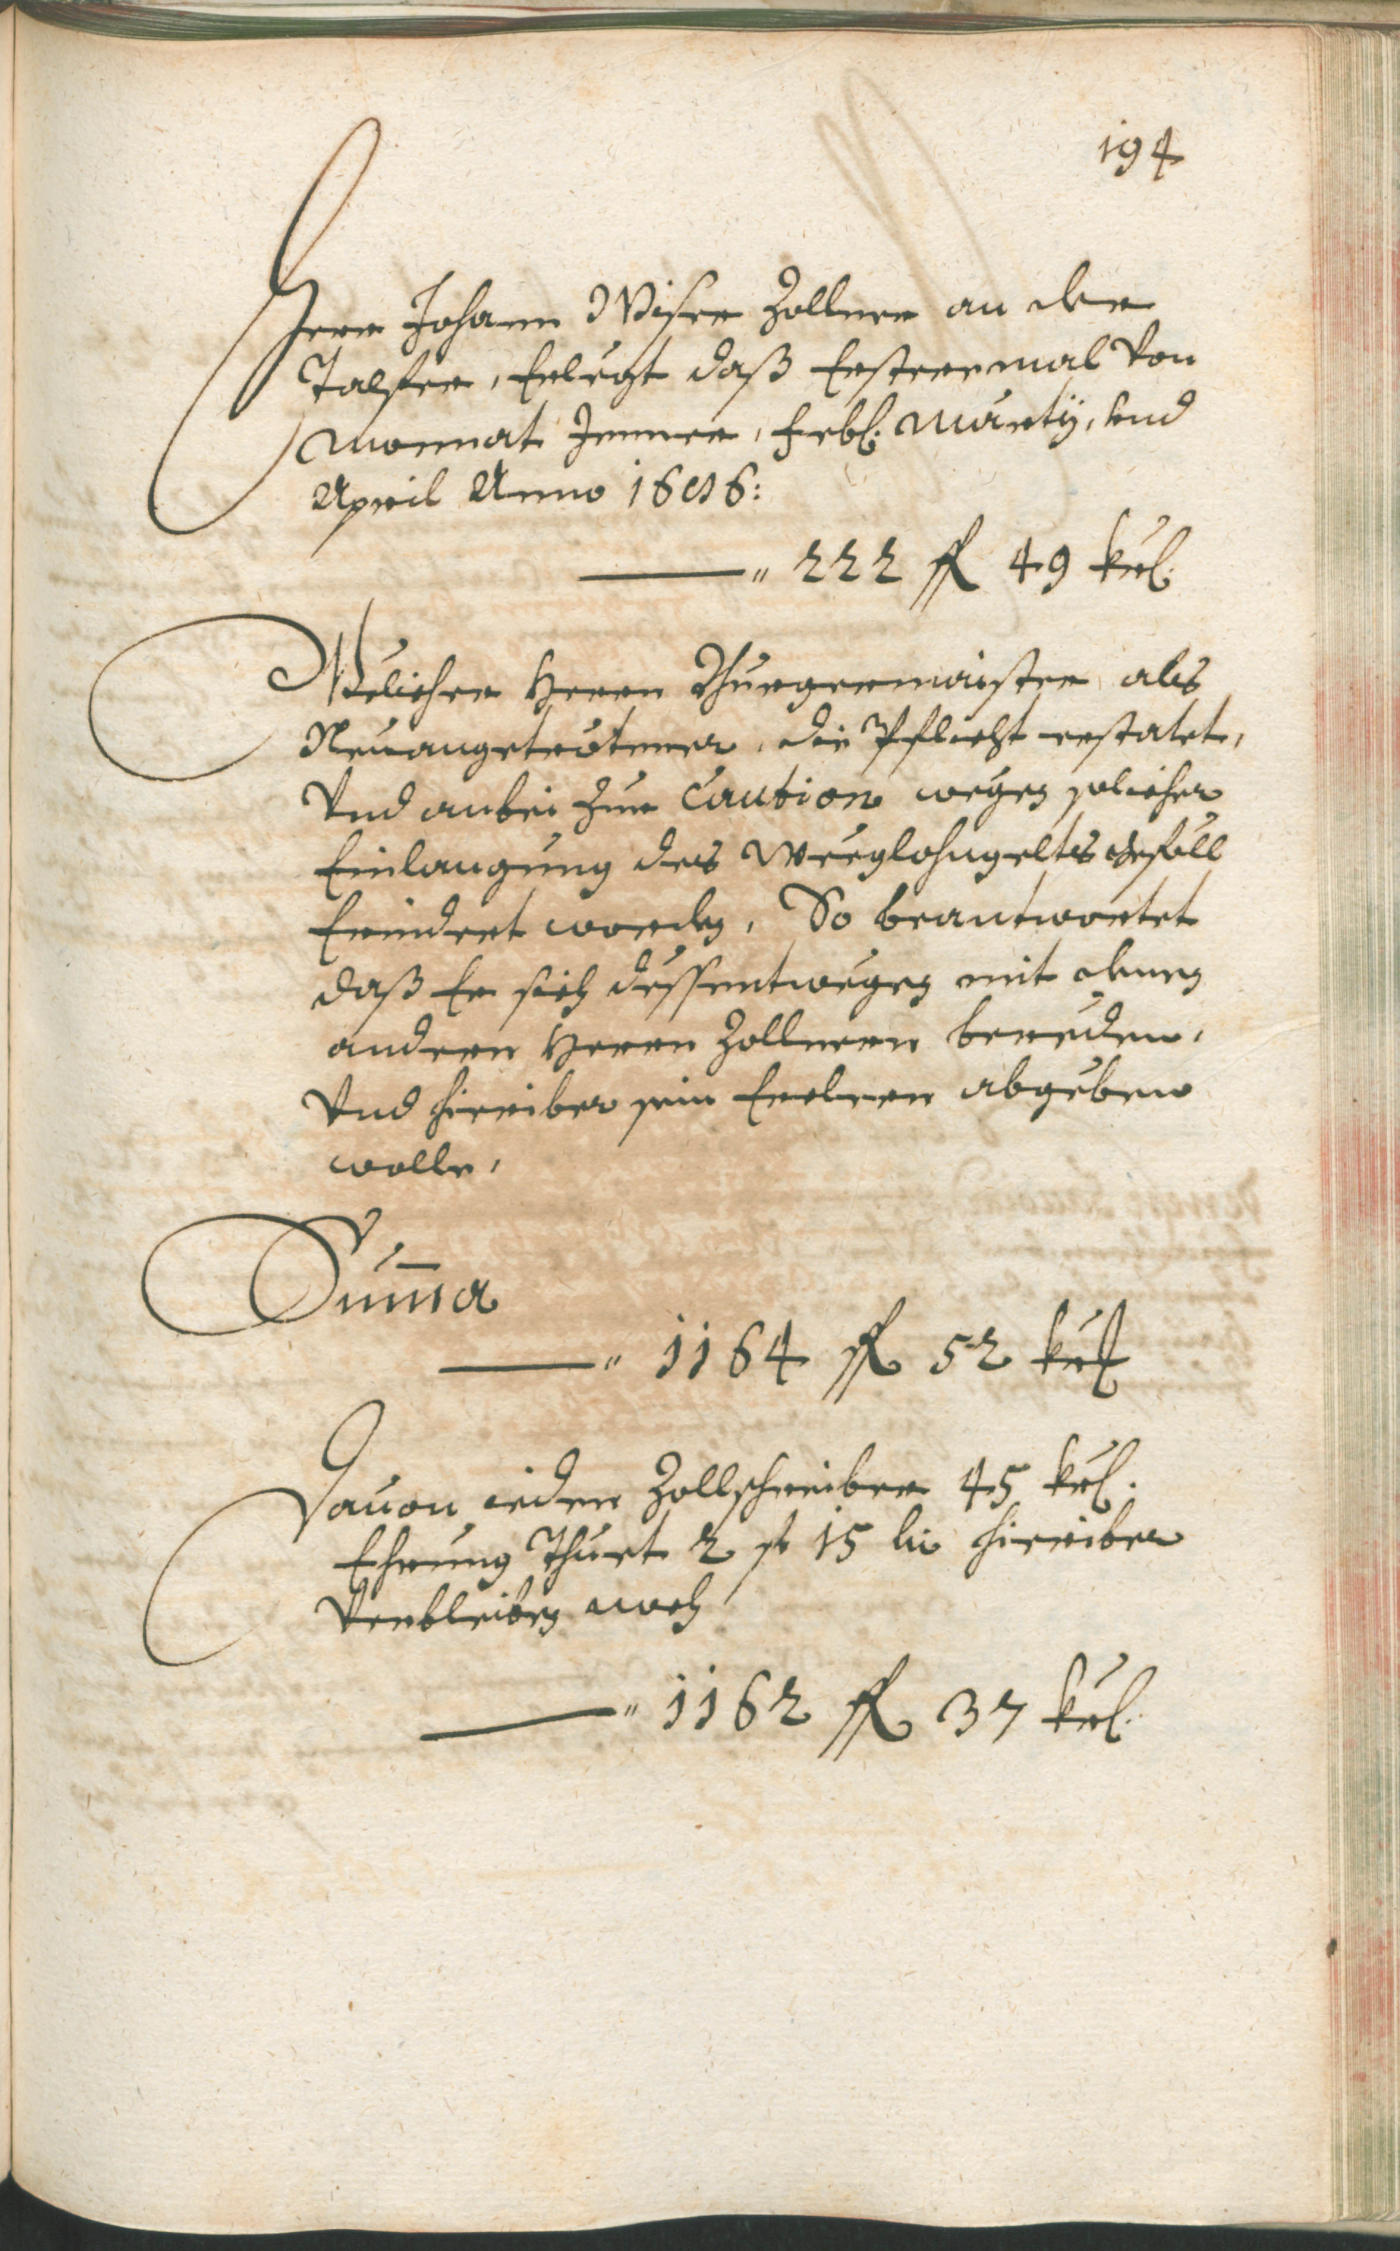 194
Herr Johann Wiser Zollner an der
Talfer, Erlegt daß Ersteremal von
Monnat Jenner, Febr: Marty, und
April Anno 1686:
" 222 fl 49 kr.
Welicher Herrn Burgermaister als
Neuangetrötner, die Pflicht erstatet,
Vnd anbei zur Caution wegen solicher
Einlangung des Weeglohngelts gefäll
Erindert worden, So beantwortet
daß Er sich dessentwegen mit denen
andern Herrn Zollnern bereden,
Vnd hierüber sein Erclern abgeben
wolle,
Summa
" 1164 fl 52 kr
Dauon ieden Zollschreiber 45 kr.
Ehrung Thuet 2 fl 15 kr hierüber
Verbleiben noch
" 1162 fl 37 kr.